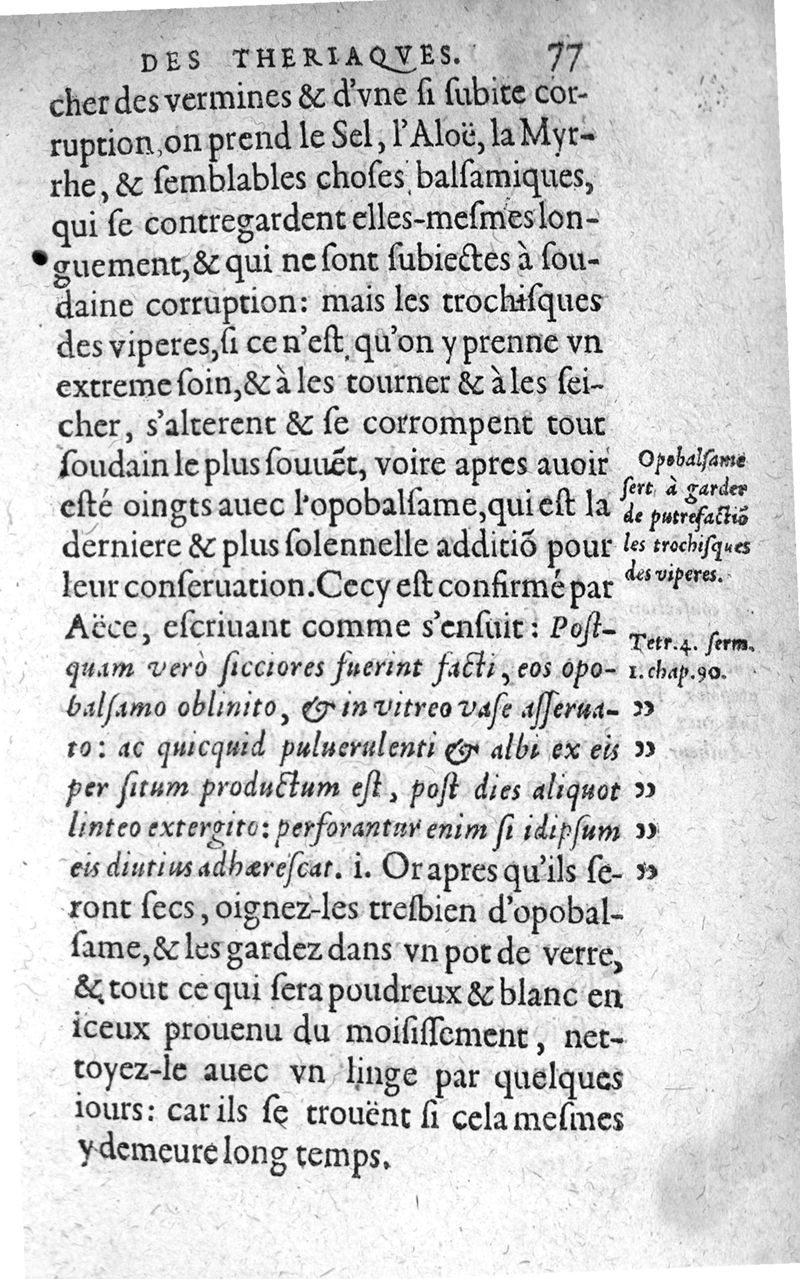 DES THERIAQVES. 77
cher des vermines & d'vne ſi ſubite cor-
ruption, on prend le Sel, l'Aloë, la Myr-
rhe, & ſemblables choſes balſamiques,
qui ſe contregardent elles-meſmes lon-
guement, & qui ne ſont ſubiectes à ſou-
daine corruption: mais les trochiſques
des viperes, ſi ce n'eſt qu'on y prenne vn
extreme ſoin, & à les tourner & à les ſei-
cher, s'alterent & ſe corrompent tout
ſoudain le plus ſouuẽt, voire apres auoir
eſté oingts auec l'opobalſame, qui eſt la
derniere & plus ſolennelle additiõ pour
leur conſeruation. Cecy eſt confirmé par
Aëce, eſcriuant comme s'enſuit: Poſt-
quam verò ſicciores fuerint facti, eos opo-
balſamo oblinito, & in vitreo vaſe aſſerua- ”
to: ac quicquid puluerulenti & albi ex eis ”
per ſitum productum eſt, poſt dies aliquot ”
linteo extergito: perforantur enim ſi idipſum ”
eis diutius adhæreſcat. i. Or apres qu'ils ſe- ”
ront ſecs, oignez-les treſbien d'opobal-
ſame, & les gardez dans vn pot de verre,
& tout ce qui ſera poudreux & blanc en
iceux prouenu du moiſiſſement, net-
toyez-le auec vn linge par quelques
iours: car ils ſe trouënt ſi cela meſmes
y demeure long temps.
Opobalſame
ſert à garder
de putrefactiõ
les trochiſques
des viperes.
Tetr. 4. ſerm.
1. chap. 90.